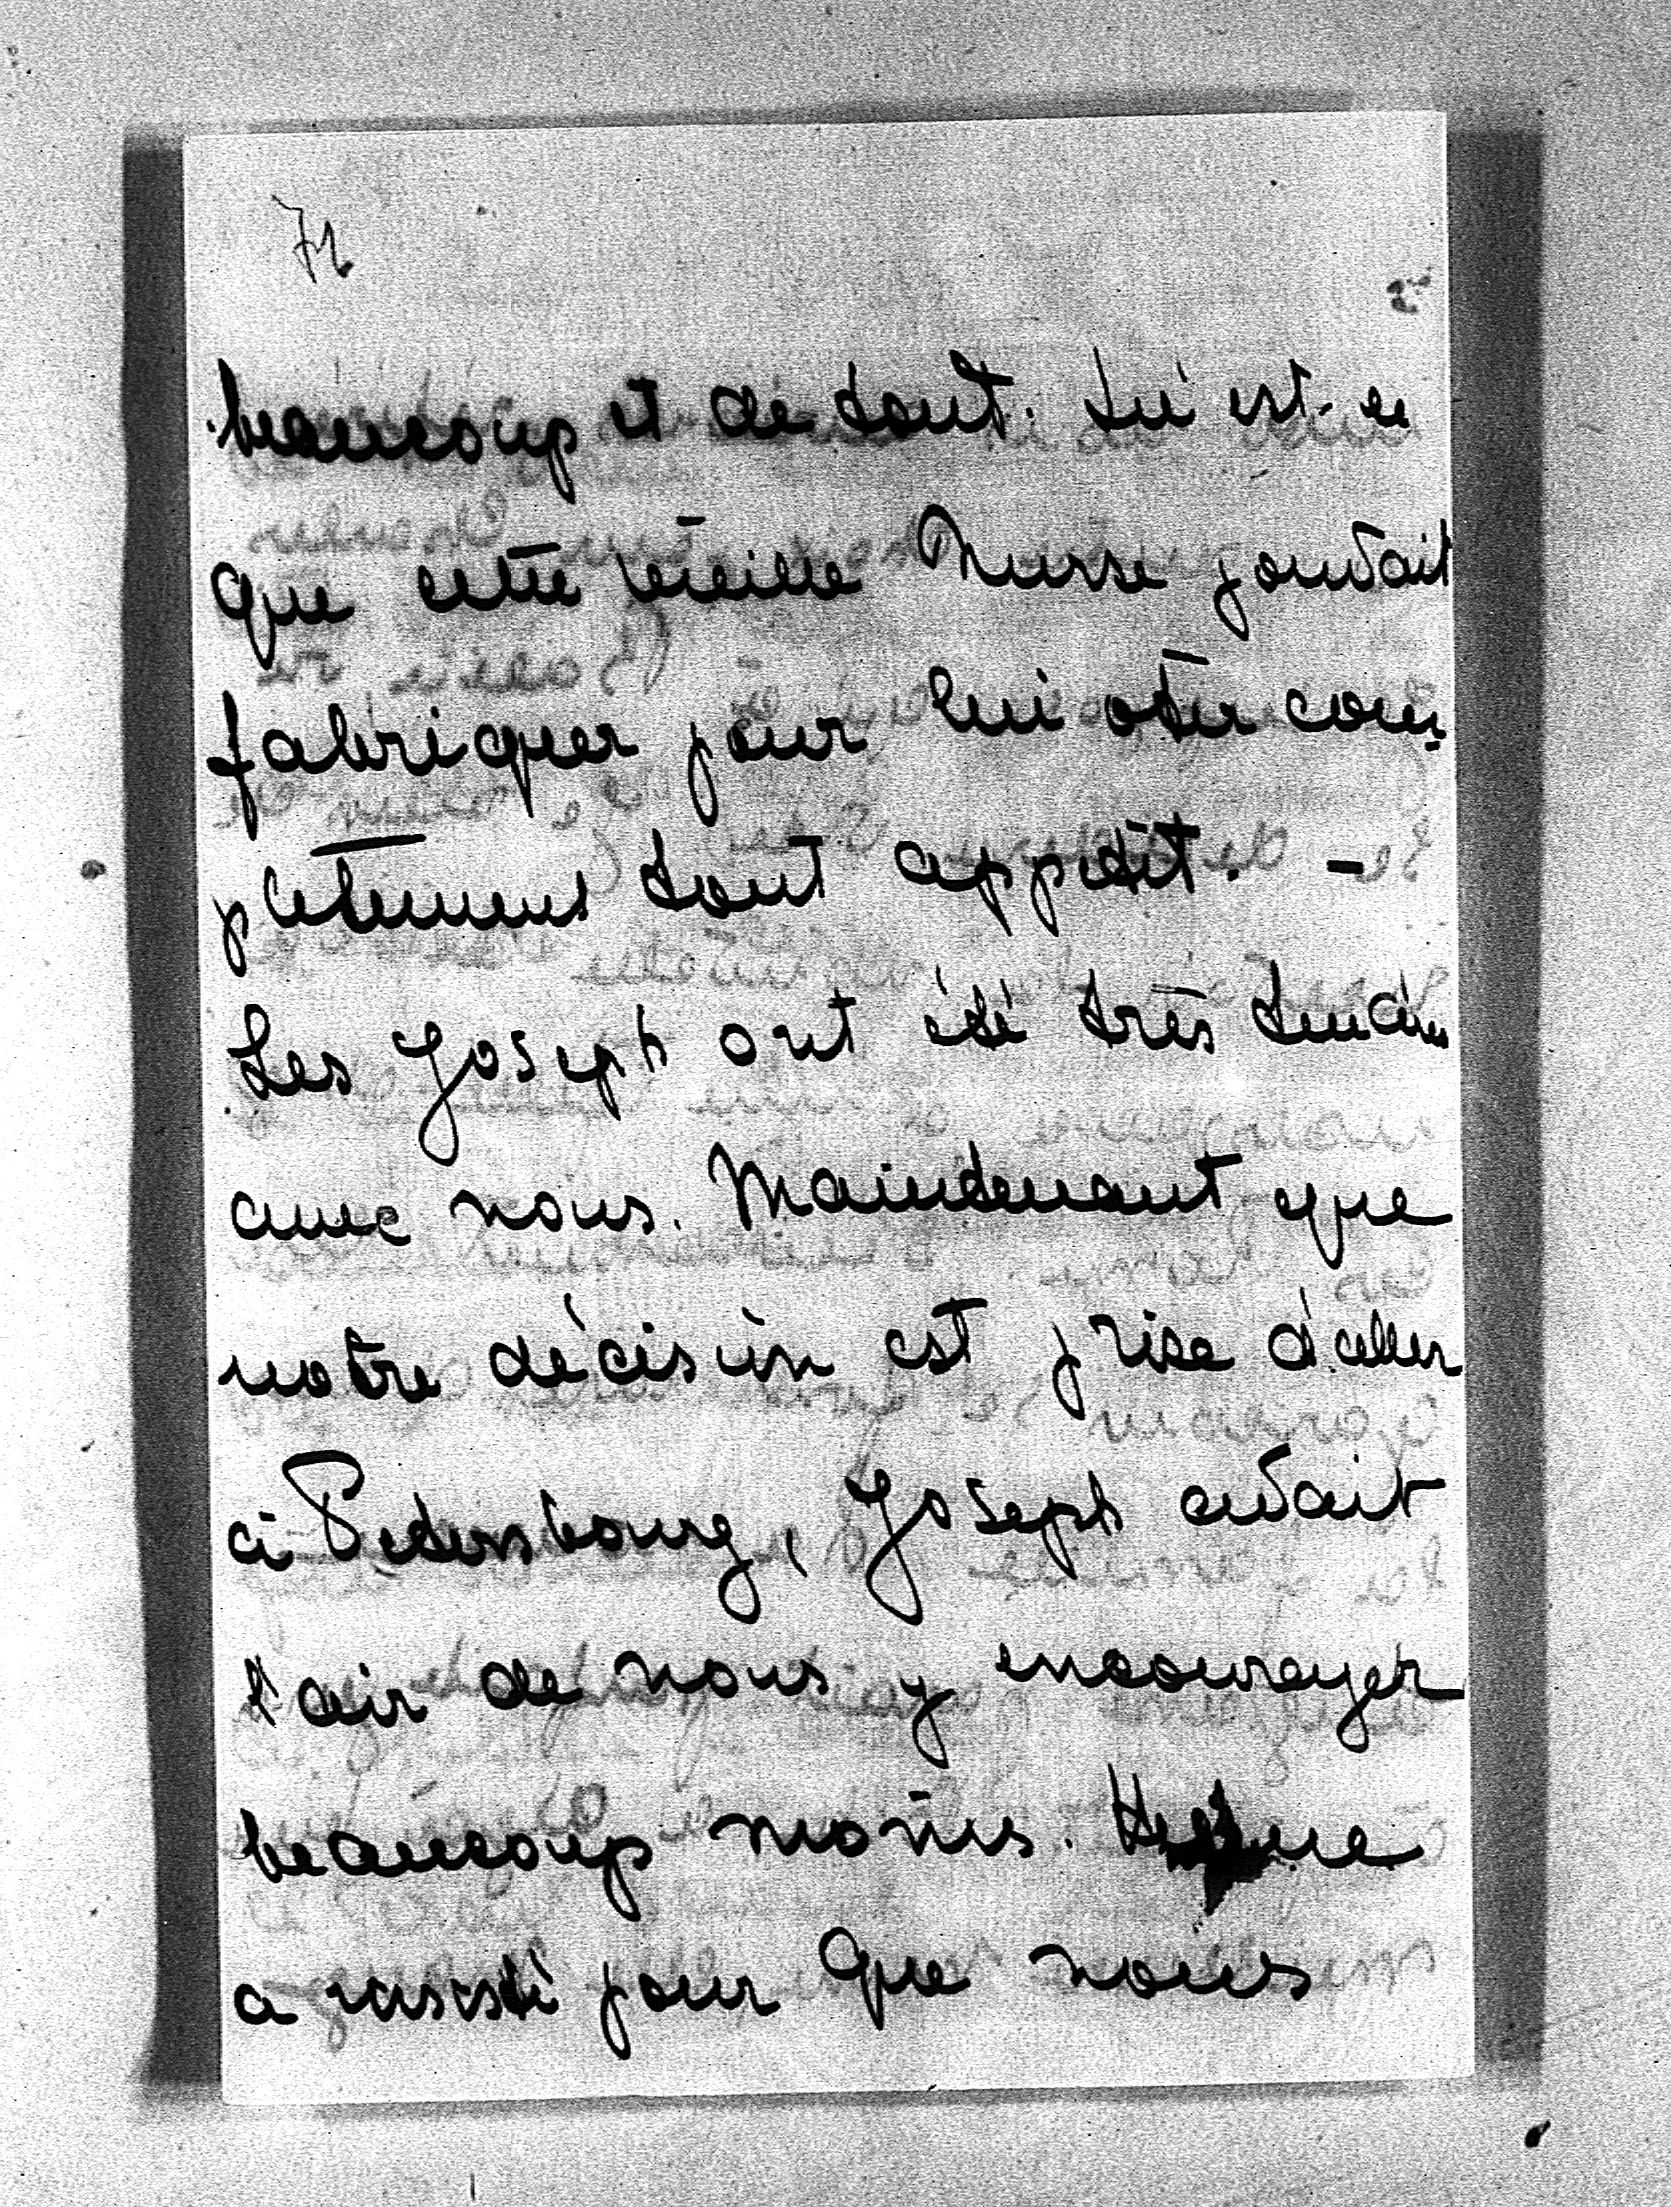 beaucoup et de tout. Qu'est-ce
que cette vieille Nurse pouvait
fabriquer pour lui oter com
pletement tout appetit. -
Les Joseph ont été très
avec nous. Maintenant que
notre décision est prise d'aller
à Petersbourg, Joseph avait
l'air de nous y encourager
beaucoup moins.
a insisté pour que nous